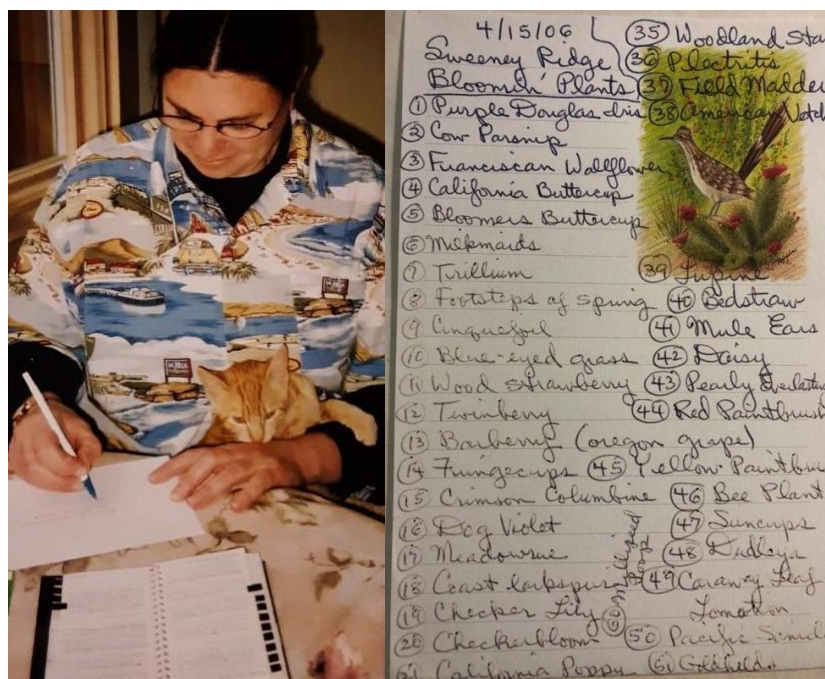 4/15/06
Sweeney Ridge
Bloomin' Plants
① Purple Douglas Iris
② Cow Parsnip
③ Franciscan Wallflower
④ California Buttercup
⑤ Bloomers Buttercup
⑥ Milkmaids
⑦ Trillium
⑧ Footsteps of spring
⑨ Cinquefoil
⑩ Blue-eyed grass
⑪ Wood strawberry
⑫ Twinberry
⑬ Barberry (oregon grape)
⑭ Fringecups
⑮ Crimson Columbine
⑯ Dog Violet
⑰ Meadowrue
⑱ Coast larkspur
⑲ Checker Lily
⑳ Checkerbloom
21 California Poppy
㉟ Woodland Sta
㊱ Plectritis
㊲ Field Madder
㊳ American Vetch
㊴ Lupine
㊵ Bedstraw
㊶ Mule Ears
㊷ Daisy
㊸ Pearly Everlasting
㊹ Red Paintbrush
㊺ Yellow Paintbru
㊻ Bee Plant
㊼ Suncups
㊽ Dudleya
㊾ Caraway Leaf
Lomatium
㊿ Pacific Sanicl
(51) Goldfields